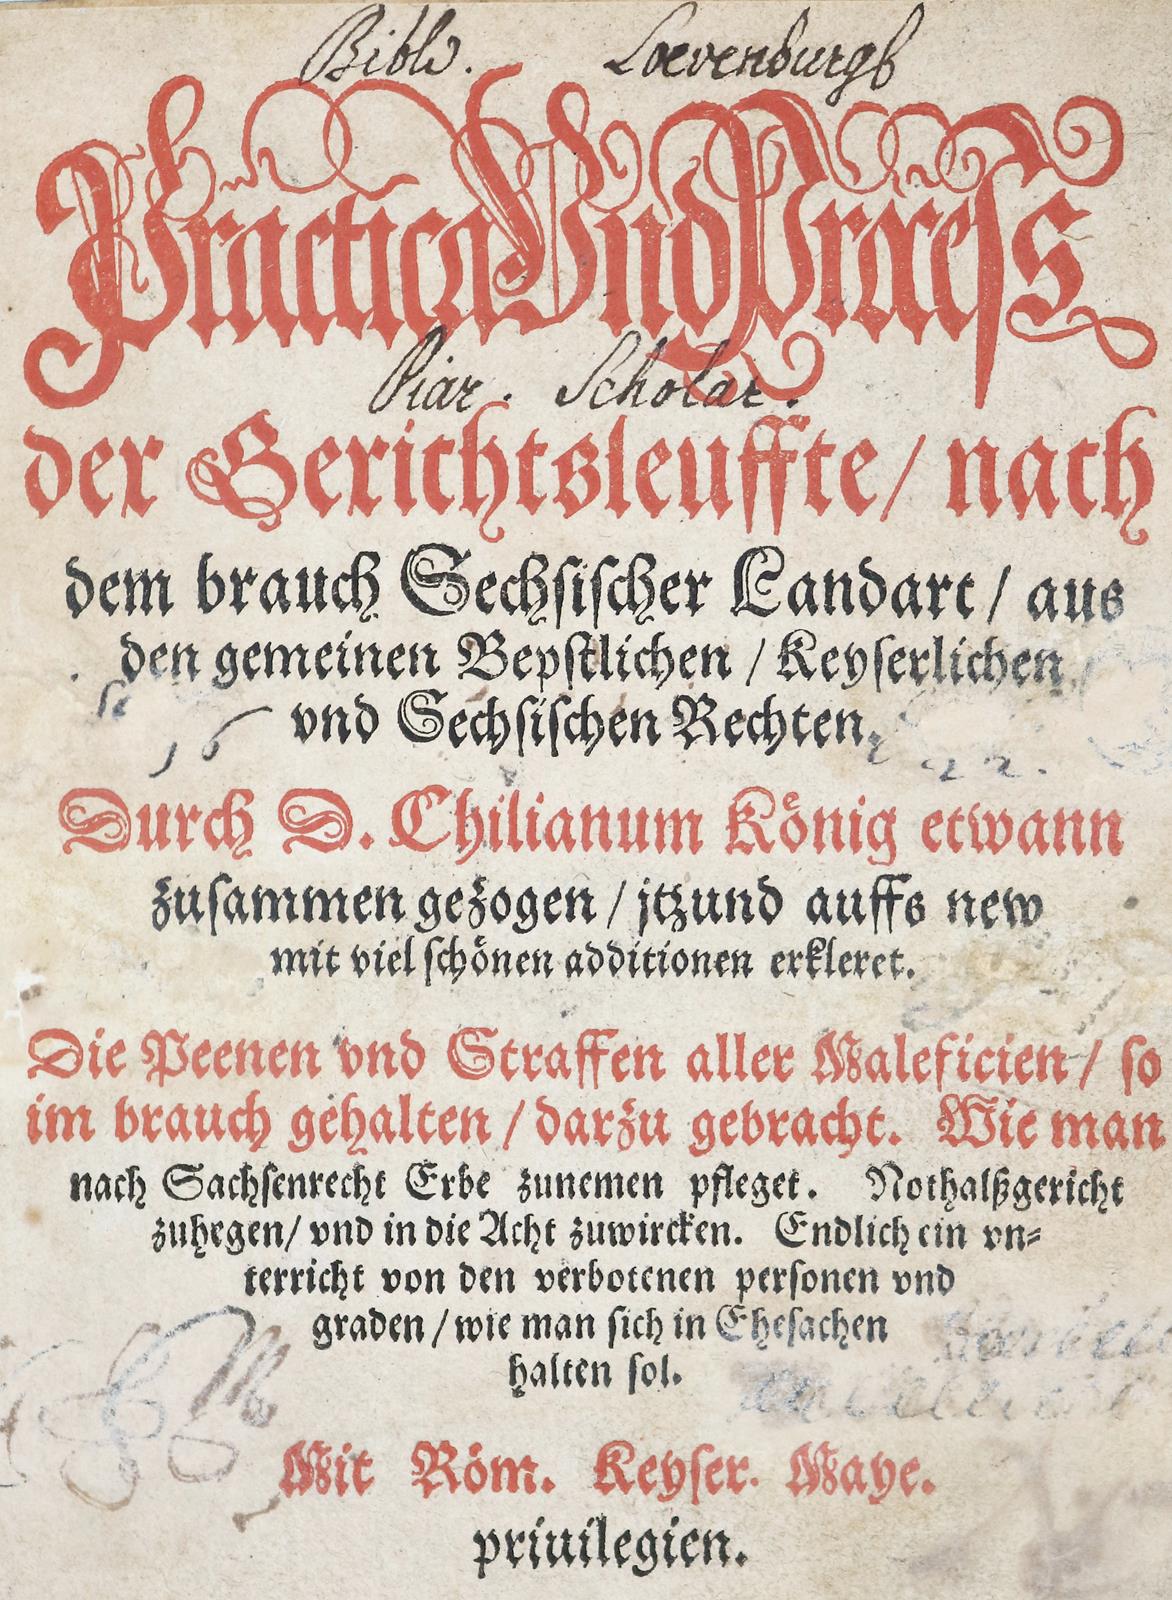 Bibl. Loevenburgh
Practica Vnd Process
Piar. Scholar.
der Gerichtsleuffte / nach
dem brauch Sechsischer Landart / aus
den gemeinen Bepstlichen / Keyserlichen
vnd Sechsischen Rechten.
16 22.
Durch D. Chilianum König etwann
zusammen gezogen / jtzund auffs new
mit viel schönen additionen erkleret.
Die Peenen vnd Straffen aller Maleficien / so
im brauch gehalten / darzu gebracht. Wie man
nach Sachsenrecht Erbe zunemen pfleget. Nothalßgericht
zuhegen / vnd in die Acht zuwircken. Endlich ein vn=
terricht von den verbotenen personen vnd
graden / wie man sich in Ehesachen
halten sol.
Mit Röm. Keyser. Maye.
priuilegien.